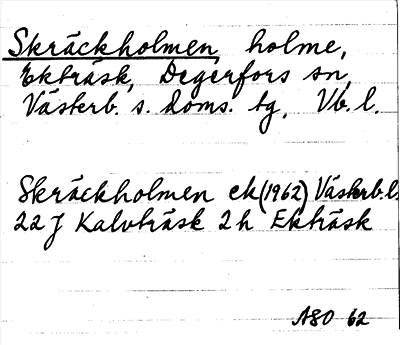 Skräckholmen, holme,
Ekträsk, Degerfors sn,
Västerb. s. doms. tg, Vb. l.
Skräckholmen ek (1962) Västerb. l.
22 J Kalvträsk 2 h Ekträsk
ASO 62